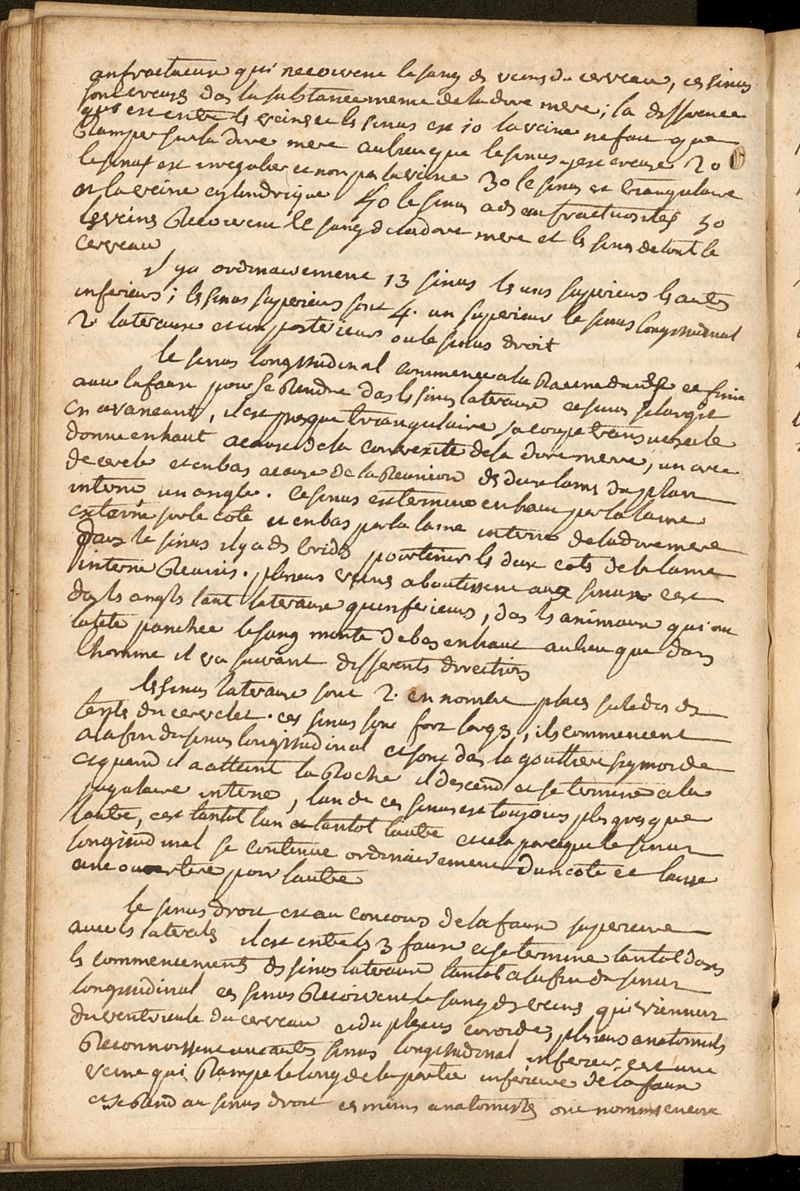 anfractueux qui recoivent le sang des veines du cerveau, ces sinus
sont creusés dans la substance meme de la dure mere; la difference
qui est entre les veines et les sinus est 1o la veine ne fait que
ramper sur la dure mere au lieu que le sinus y est creusé 2o
le sinus est irregulier et non pas la veine 3o le sinus est triangulaire
et la veine cylindrique 4o le sinus a des anfractuosites 5o
les veines recoivent le sang de la dure mere et les sinus de tout le
cerveau
il y a ordinairement 13 sinus les uns superieurs les autres
inferieurs; les sinus superieurs sont 4. un superieur le sinus longitudinal
2 lateraux et un posterieur ou le sinus droit
le sinus longitudinal commence a la racine du et finit
avec la faux pour se rendre dans les sinus lateraux ce sinus s'elargit
en avancant, il est presque triangulaire sa coupe transversale
donne en haut a cause de la convexite de la dure mere, un arc
de cercle et en bas a cause de la reunion des deux lames du plan
interne un angle. ce sinus est terminé en haut par la lame
externe sur le coté et en bas par la lame interne de la dure mere
dans le sinus il y a des brides pour tenir les deux cotés de la lame
interne reunis. plusieurs veines aboutissent aux sinus c'est
dans les angles tant lateraux qu'inferieurs, dans les animaux qui ont
la tete panchée le sang monte de bas en haut au lieu que dans
l'homme il va suivant differents directions
les sinus lateraux sont 2 en nombre placés sur le dos des
tente du cervelet. ces sinus sont fort larges, ils commencent
a la fin du sinus longitudinal et sont dans la gouttiere sygmoide
et quand il a atteint la roche il descend et se termine a la
jugulaire interne, l'un de ces sinus est toujours plus gros que
l'autre, c'est tantot l'un et tantot l'autre et cela parceque le sinus
longitudinal se continue ordinairement d'un coté et laisse
une ouverture pour l'autre
le sinus droit est au concours de la faux superieure
avec les laterales il est entre les 3 faux et se termine tantot dans
les commencements des sinus lateraux tantot a la fin du sinus
longitudinal ces sinus recoivent le sang des veines qui viennent
du ventricule du cerveau et du plexus coroides, plusieurs anatomistes
reconnoissent un autre sinus longitudinal inferieur c'est une
veine qui rampe le long de la partie inferieure de la faux
et se rend au sinus droit ces memes anatomistes ont nommé encore